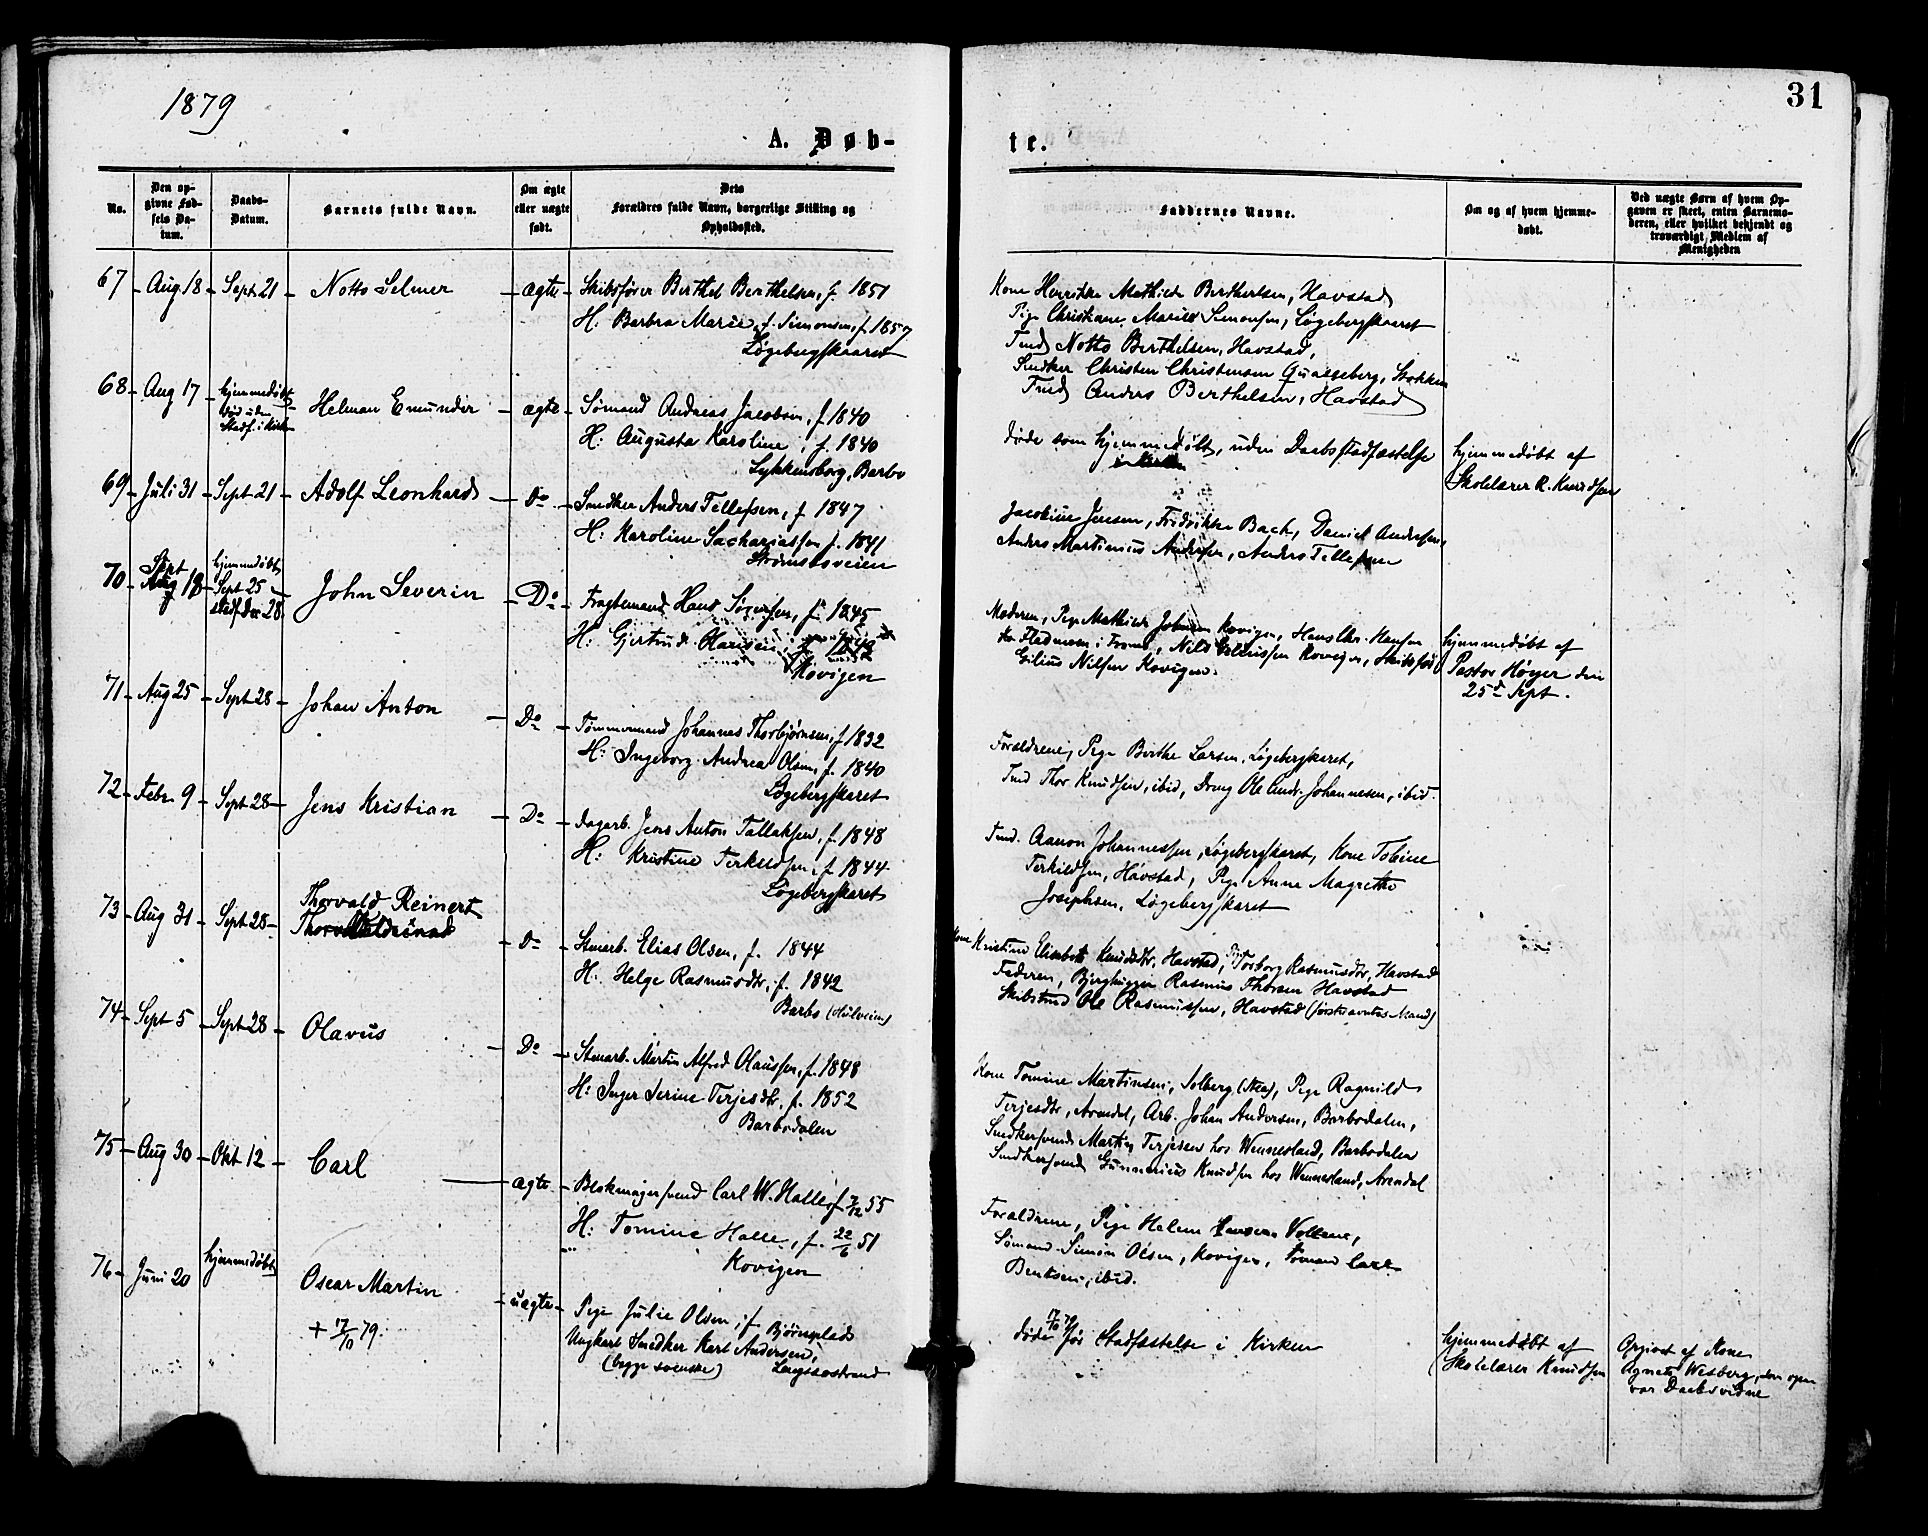 1879
31
A. Døb-
te.
No.
Den op-
givne Fød-
sels Da-
tum.
Daabs-
Datum.
Barnets fulde Navn.
Om ægte
eller uægte
født.
Dets
Forældres fulde Navn, borgerlige Stilling og
Opholdssted.
Faddernes Navne.
Om og af hvem hjemme-
døbt.
Ved uægte Børn af hvem Op-
gaven er skeet, enten Barnemo-
deren, eller hvilket bekjendt og
troværdigt Medlem af
Menigheden
67 Aug 18 Sept 21 Notto Selmer ægte Skibsfører Berthel Berthelsen, f. 1851
H: Barbra Marie, f. Simonsen, f. 1857
Løgebergskaaret
Kone Henrikke Mathilde Berthelsen, Havstad
Pige Christiane Marie Simonsen, Løgebergskaaret
Tmd Notto Berthelsen, Havstad,
Snedker Christen Christensen Stokken
Tmd Anders Berthelsen, Havstad
68 Aug 17 hjemmedøbt
død uden
Stadf. i Kirken
Helman Emunder ægte Sømand Andreas Jacobsen, f. 1840
H: Augusta Karoline, f. 1840
Lykkensborg, Barbo
døde som hjemmedøbt, uden Daabsstadfæstelse
hjemmedøbt af
Skolelærer R. Knudsen
69 Juli 31 Sept 21 Adolf Leonhard Do Snedker Anders Tellefsen, f. 1847
H: Karoline Sachariassen f. 1841
Strømsbsveien
Jacobine Jensen, Fredrikke Bach, Daniel Andersen,
Anders Martinius Andersen, Anders Tellefsen
70 Sept
18 hjemmedøbt
Sept 25
stadf. Dec 28
John Severin Do Fragtemand Hans Sørensen, f. 1845
H: Gjertrud
Kovigen
Moderen, Pige Mathilde Kovigen, Hans Chr. Hansen
Nils Kovigen, Skibsfør
Gilius Nilsen Kovigen.
hjemmedøbt af
Pastor Høyer den
25de Sept.
71 Aug 25 Sept 28 Johan Anton Do Tømmermand Johannes Thorbjørnsen, f. 1832
H: Ingeborg Andrea Olsen, f. 1840
Løgebergskaret
Forældrene, Pige Berthe Larsen, Løgebergskaret,
Tmd Thor Knudsen, ibid, Dreng Ole Andr. Johannesen, ibid.
72 Febr. 9 Sept 28 Jens Kristian Do Dagarb. Jens Anton Tallaksen, f. 1848
H: Kristine Terkildsen, f. 1844
Løgebergskaret
Tmd. Aanon Johannessen, Løgebergskaret, Kone Tobine
Terkildsen, Havstad, Pige Anne Magrethe
Josephsen, Løgebergskaret
73 Aug 31 Sept 28 Thorvald Reinert
Do Stenarb. Elias Olsen, f. 1844
H: Helge Rasmusdtr, f. 1842
Barbo (Hulveien)
Kone Kristine Elisabeth Knudsdtr, Havstad, Pige Torborg Rasmusdtr, Havstad
Faderen, Rasmus Thorsen Havstad
Skibstmd Ole Rasmussen, Havstad (forstævntes Mand)
74 Sept 5 Sept 28 Olavus Do Stenarb. Martin Alfred Olaussen, f. 1848
H: Inger Serine Terjesdtr. f. 1852
Barbodalen
Kone Tomine Martinsen, Solberg Pige Ragnild
Terjesdtr, Arendal, Arb. Johan Andersen, Barbodalen,
Snedkersvend Martin Terjesen hos Wennesland, Barbodalen
Snedkersvend Gunnerius Knudsen hos Wennesland, Arendal
75 Aug 30 Okt 12 Carl ægte Blokmagersvend Carl W. Halle, f. 7/12 55
H: Tomine Halle, f. 22/6 51
Kovigen
Forældrene, Pige Helene Vollene,
Sømand Simon Olsen, Kovigen, Sømand Carl
Bentsen, ibid.
76 Juni 20 hjemmedøbt Oscar Martin
+ 17/10 79.
uægte Pige Julie Olsen, f. Bjørneplads
Ungkarl Snedker Karl Andersen,
(begge svenske) Langsæstrand
døde 17/10 79 før Stadfæstelse i Kirken
hjemmedøbt af
Skolelærer Knudsen
Opgivet af Kone
Agnete Wesberg, den
var Daabsvidne